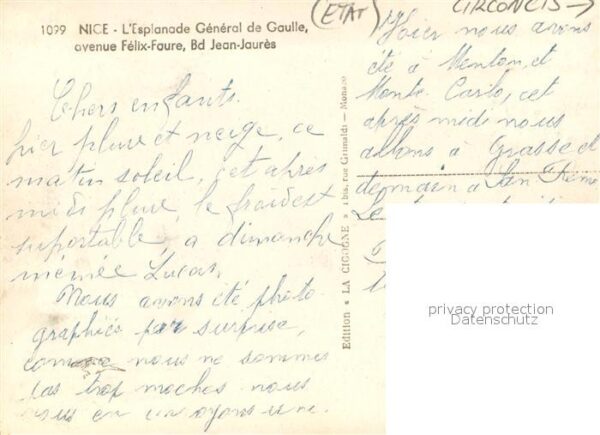 1099 NICE - L'Esplanade Général de Gaulle,
avenue Félix-Faure, Bd Jean-Jaurès
(ETAT)
CIRCONCIS →
Chers enfants.
hier pluie et neige, ce
matin soleil, cet après
midi pluie, le froid est
suportable, a dimanche
mémée Lucas.
Nous avons été photo
graphiés par surprise,
comme nous ne sommes
pas trop moches nous
vous en envoyons une.
Edition « LA CIGOGNE » bis, rue Grimaldi — Monaco
Hier nous avons
été à Menton, et
Monte Carlo, cet
après midi nous
allons à Grasse et
demain à San Remo
Le
privacy protection
Datenschutz